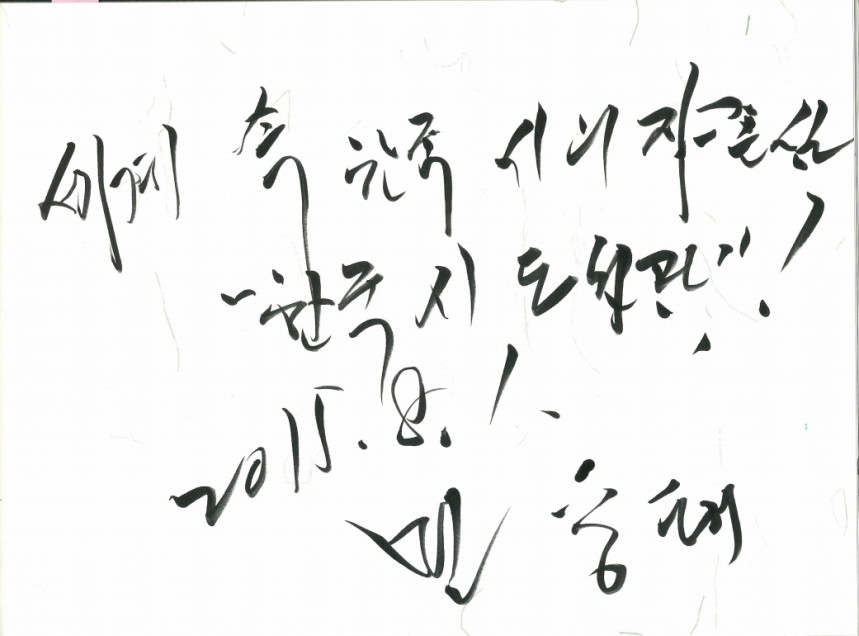 세계 속 한국 시의 자존심
한국 시 도서관이여!
2015. 8. 1.
민 웅